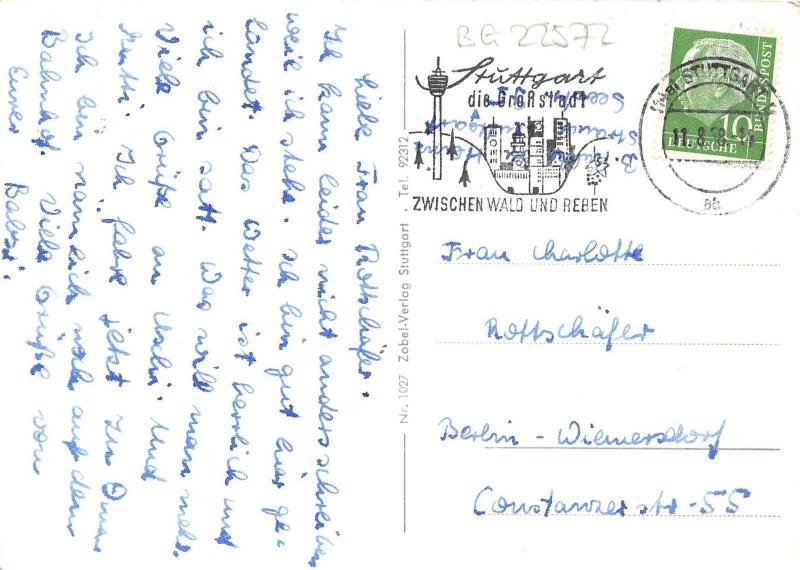 BG 22572
Liebe Frau Rottschäfer.
Ich kann leider nicht anders schreiben
weil ich stehe. Ich bin gut hier ge-
landet. Das Wetter ist herrlich und
ich bin satt. Was will man mehr.
Viele Grüße an Uschi. Und
Mutti. Ich fahre jetzt zu Oma
Ich bin nämlich noch auf dem
Bahnhof. Viele Grüße von
Eurer Babsi.
Nr. 1027 Zobel-Verlag Stuttgart - Tel. 92312
Stuttgart
die Großstadt
ZWISCHEN WALD UND REBEN
STUTTGART
11.8.58
ab
10
DEUTSCHE
BUNDESPOST
Frau Charlotte
Rottschäfer
Berlin - Wilmersdorf
Constanzer str - 55